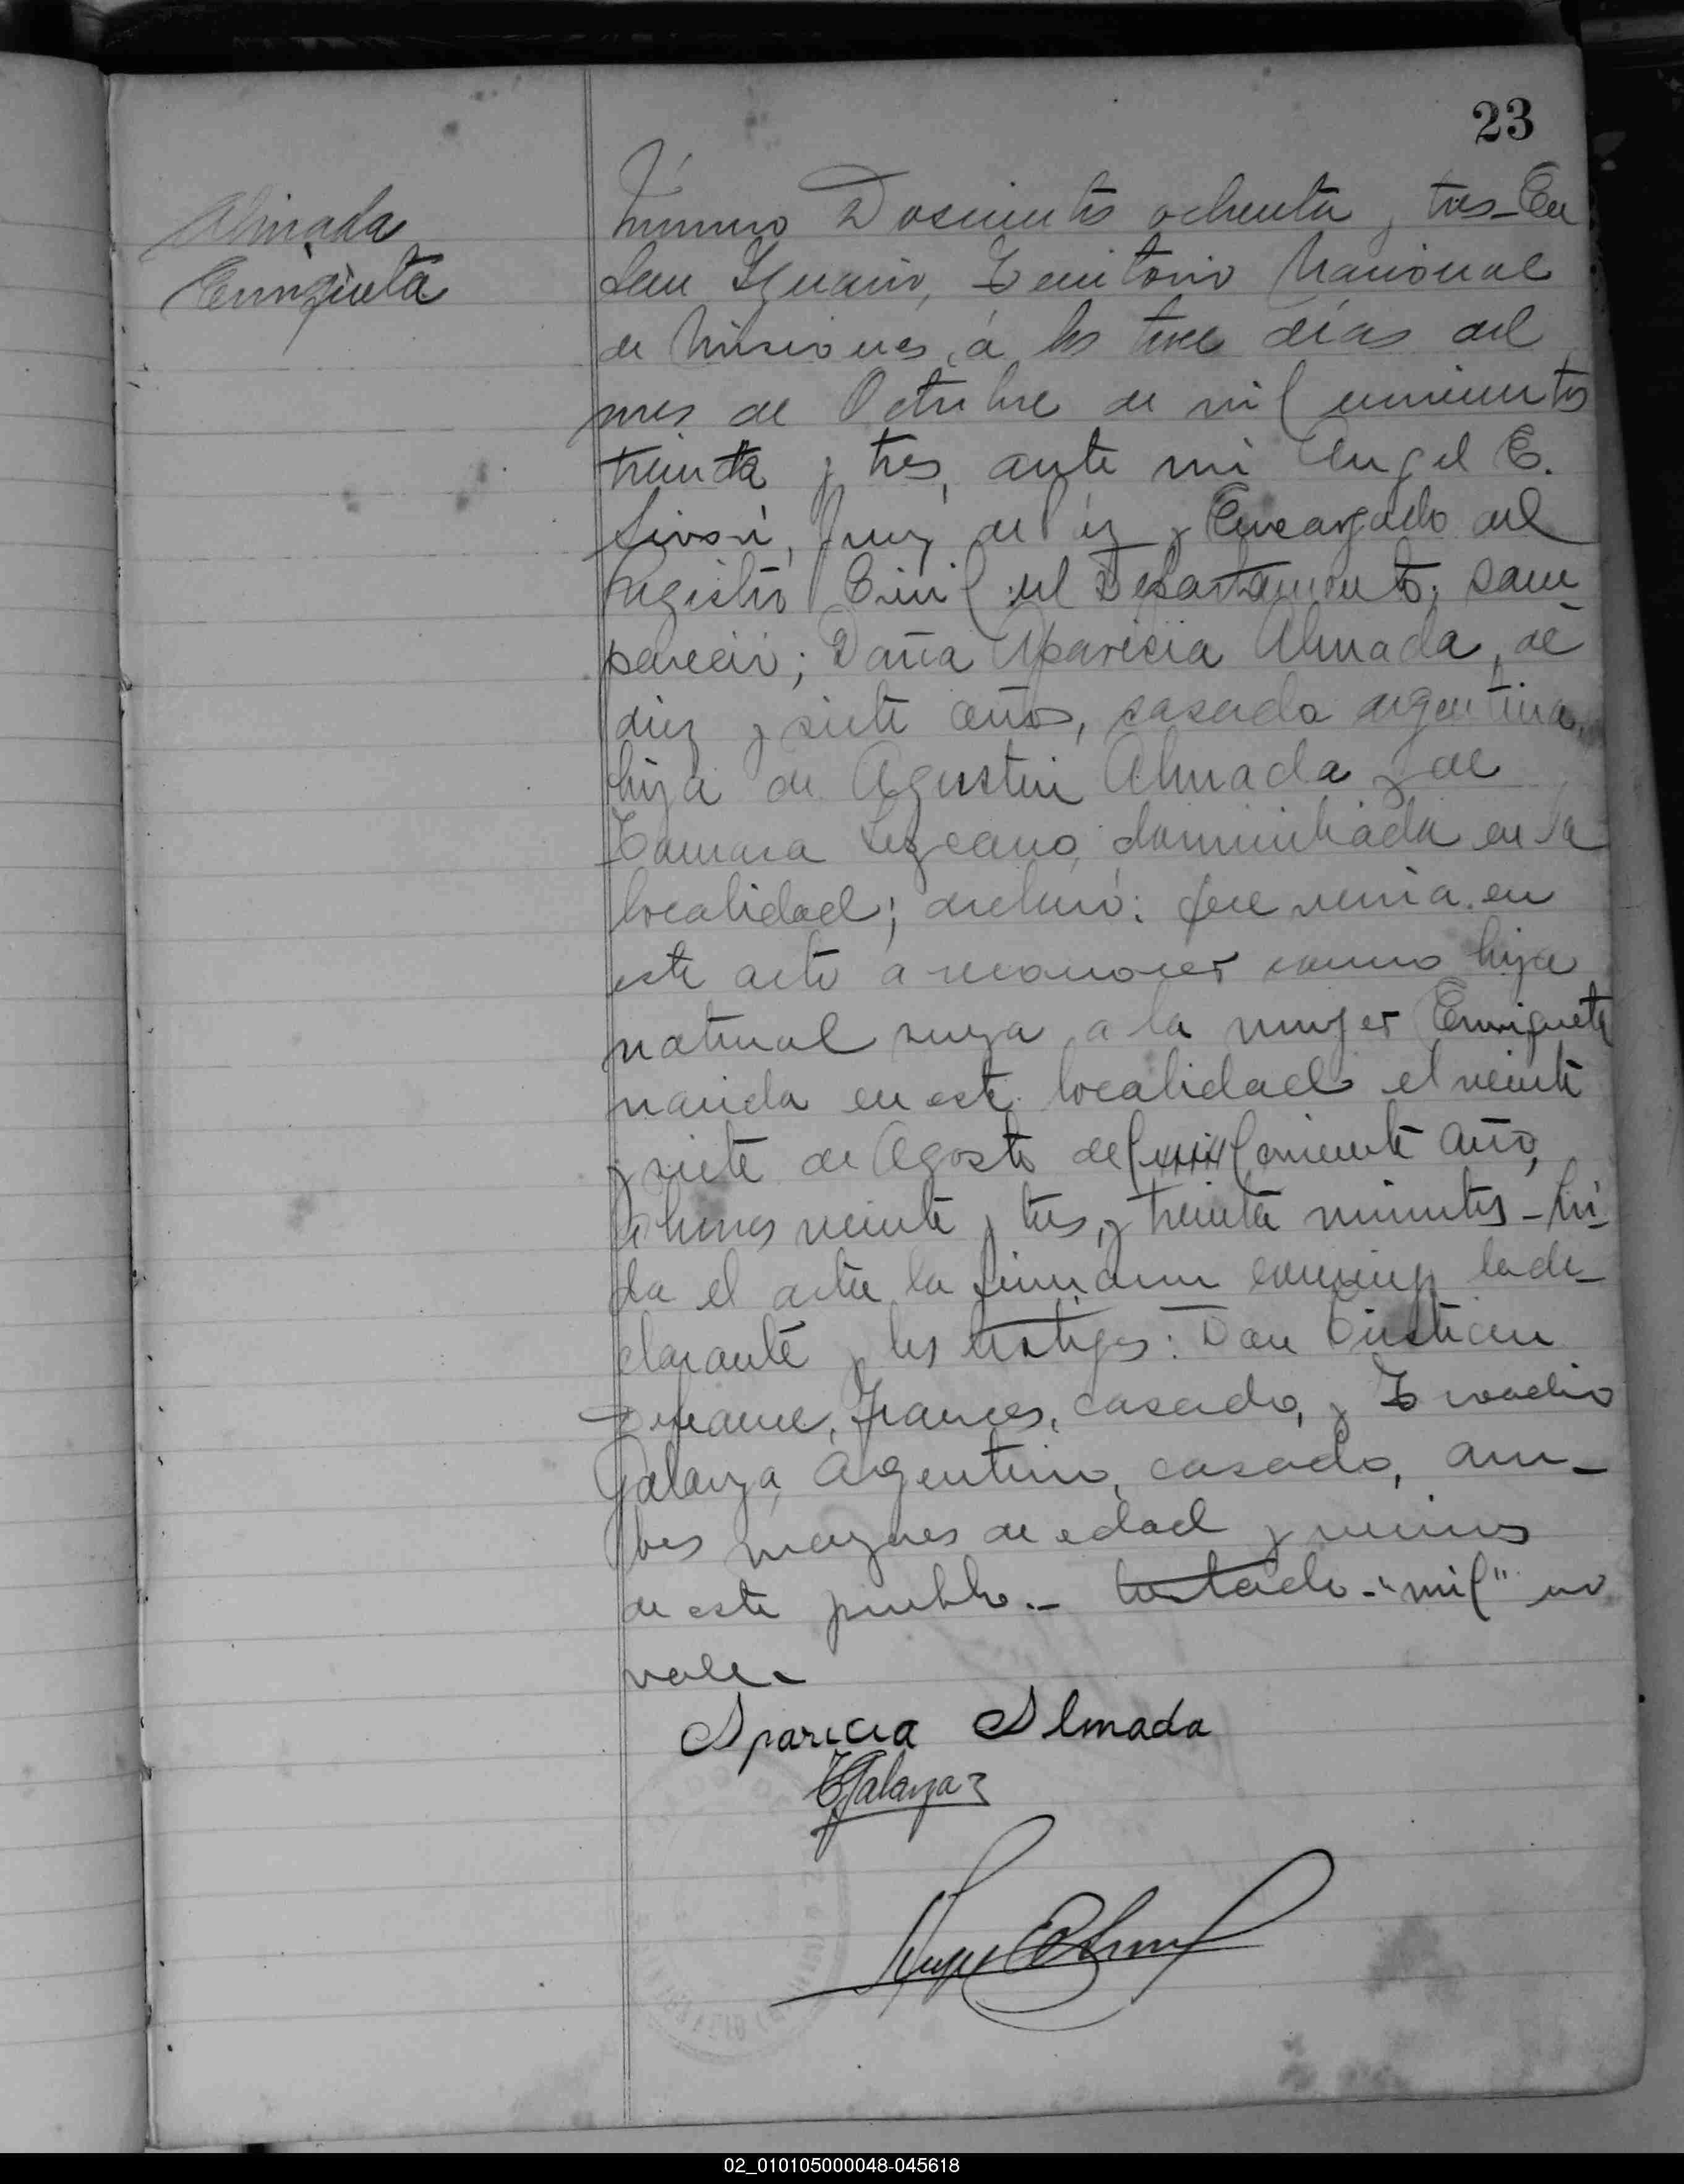 23
Almada
Enriqueta
Número Doscientos ochenta y tres - En
San Ygnacio, Territorio Nacional
de Misiones, á los trece días del
mes de Octubre de mil novecientos
treinta y tres, ante mi Angel E.
Juez de Paz y Encargado del
Registro Civil del Departamento, com
pareció; Doña Aparicia Almada, de
diez y siete años, casada argentina,
hija de Agustin Almada y de
Lezcano, domiciliada en la
localidad; declaró: Que venia en
este acto a reconocer como hija
natural suya a la mujer Enriqueta
nacida en esta localidad el veinte
y siete de Agosto del corriente año,
a horas veinte y tres, y treinta minutos - Leí
da el acta la firmaron conmigo la de-
clarante y los testigos: Don
Frances, casado, y
Galarza, Argentino, casado, am-
bos mayores de edad y vecinos
de este pueblo. - testado - "mil" no
vale. -
Aparicia Almada
Galarza
02_010105000048-045618